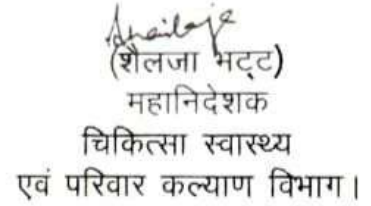 Shailaja
(शैलजा भट्ट)
महानिदेशक
चिकित्सा स्वास्थ्य
एवं परिवार कल्याण विभाग।